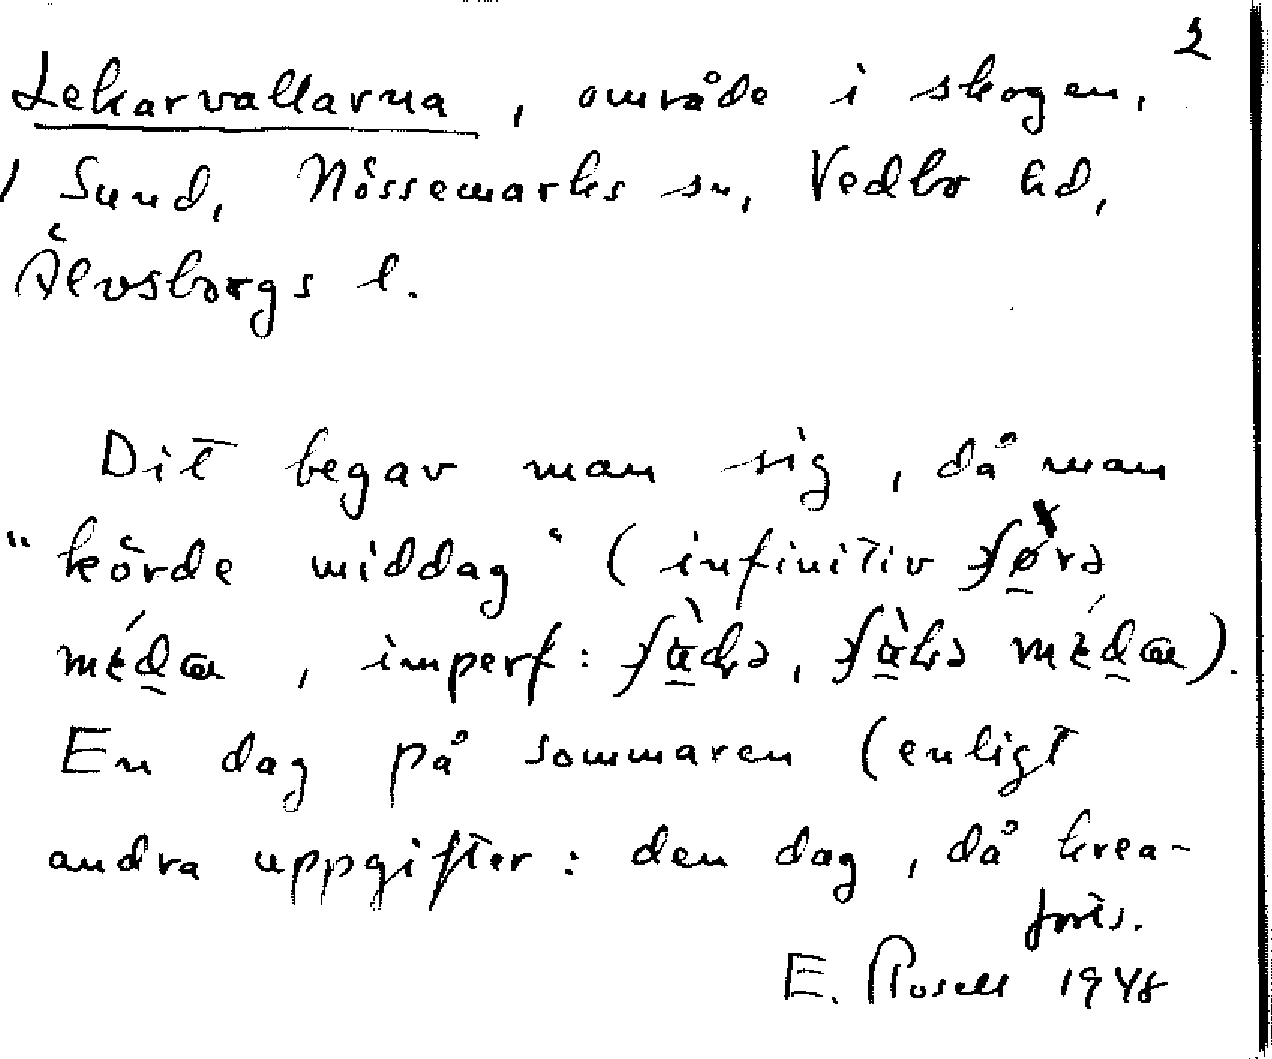 2
Lekarvallarna, område i skogen,
/ Sund, Nössemarks sn, Vedbo hd,
Älvsborgs l.
Dit begav man sig, då man
"körde middag" (infinitiv
, imperf:
En dag på sommaren (enligt
andra uppgifter: den dag, då krea-
forts.
E. Rosell 1948